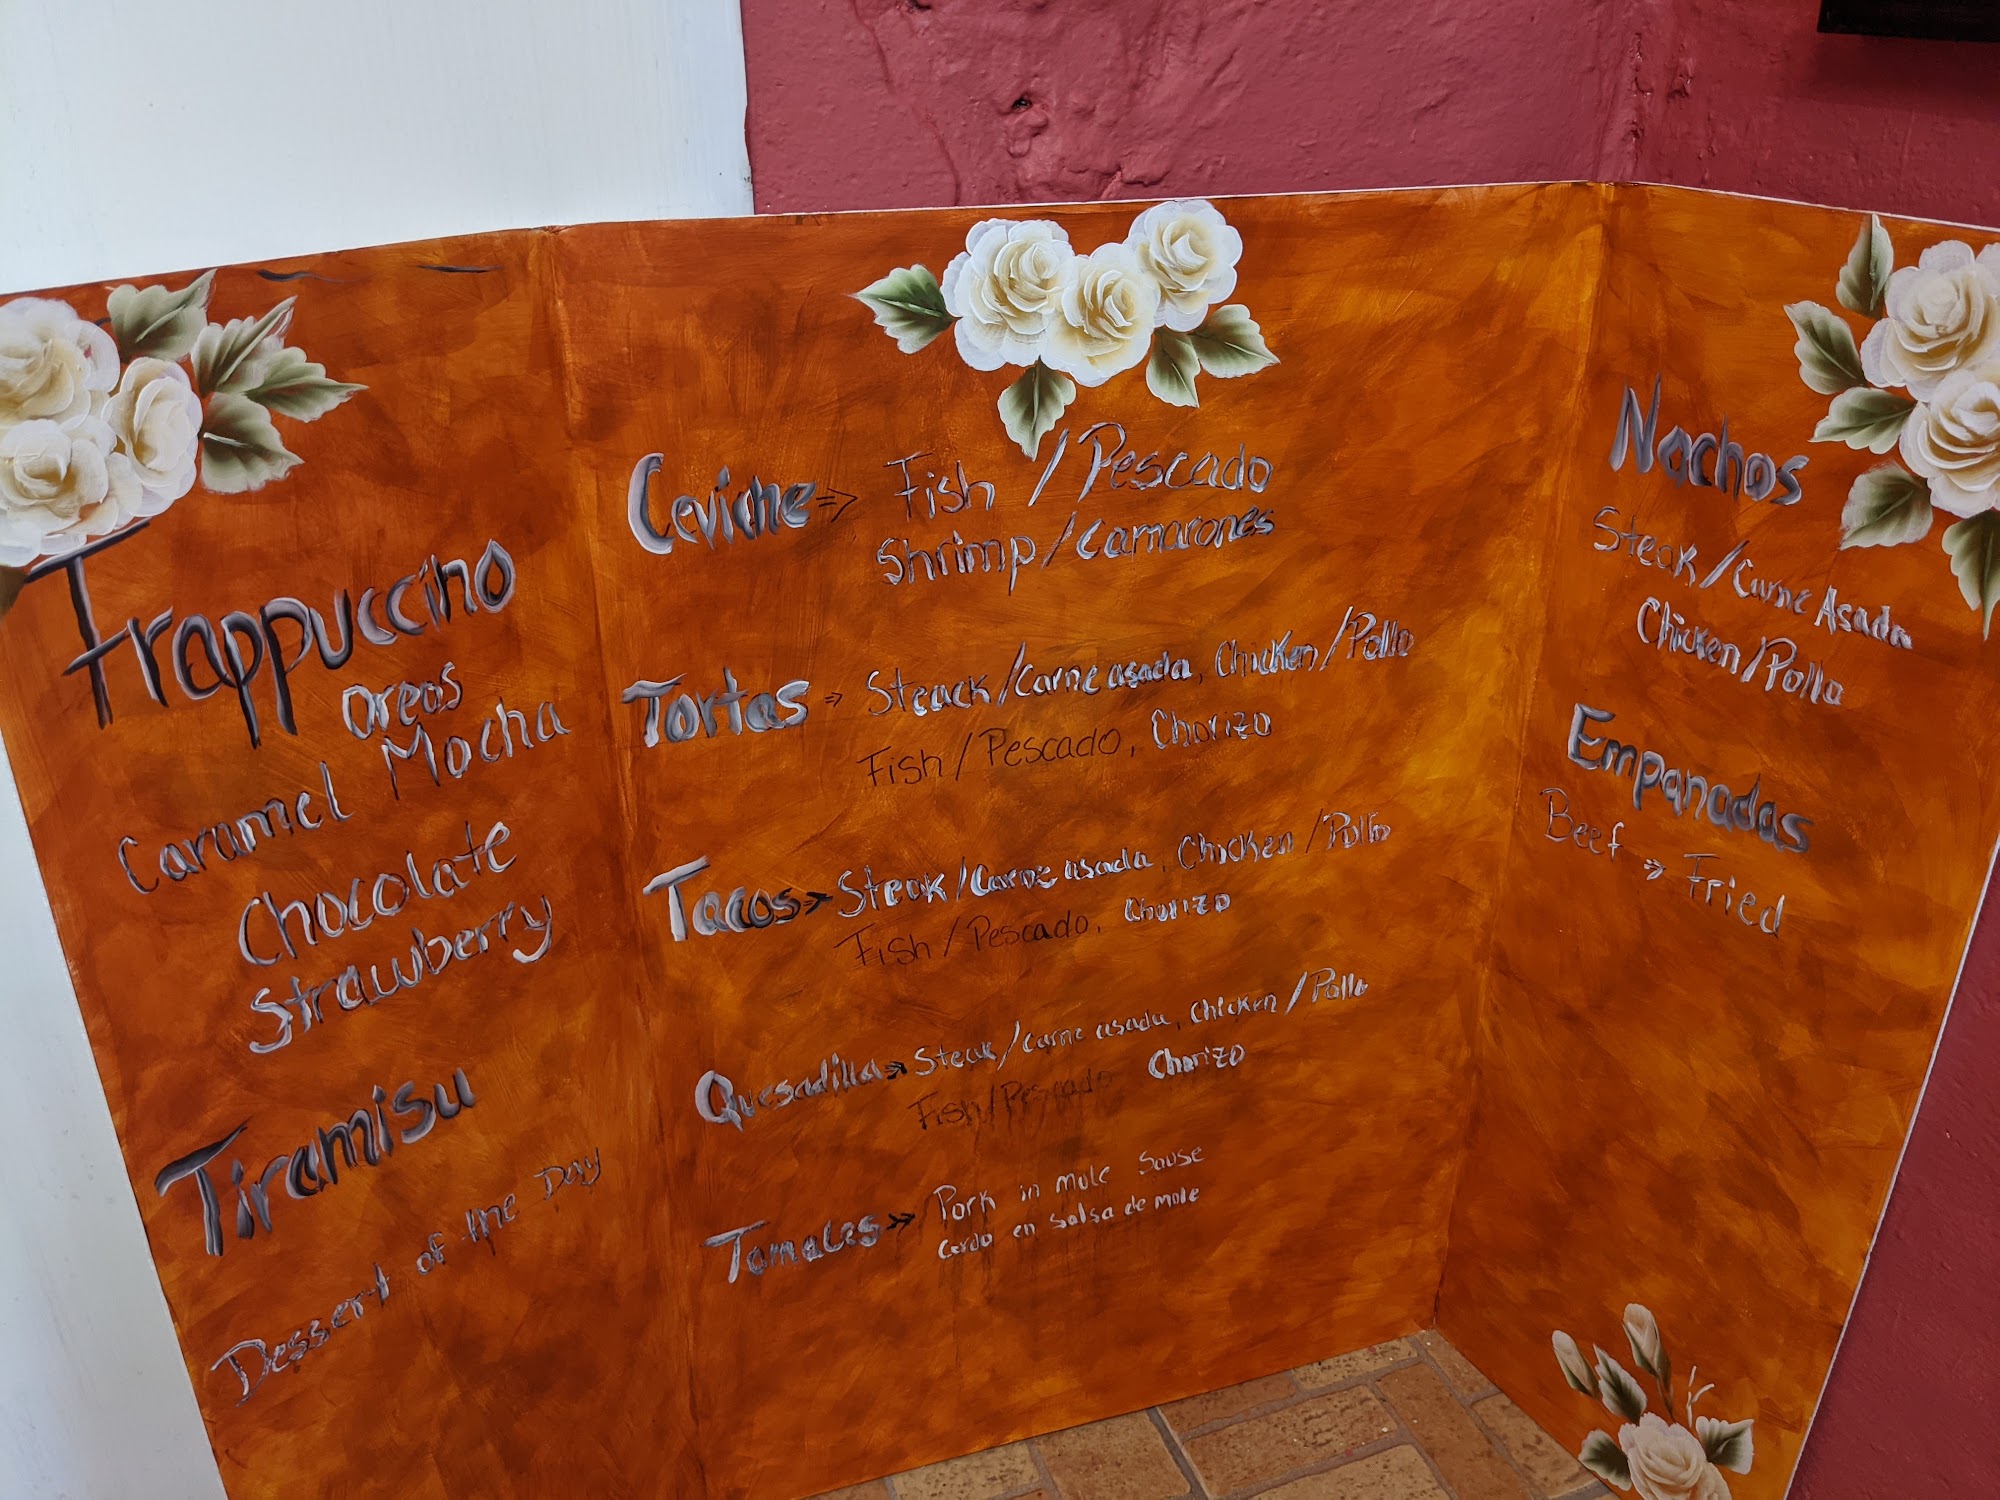 Frappuccino
Oreos
Mocha
Caramel
Chocolate
Strawberry
Tiramisu
Dessert of the Day
Ceviche => Fish / Pescado
Shrimp / Camarones
Tortas => Steack / Carne asada, Chicken / Pollo
Fish / Pescado, Chorizo
Tacos => Steak / Carne asada, Chicken / Pollo
Fish / Pescado, Chorizo
Quesadilla => Steak / Carne asada, Chicken / Pollo
Fish / Pescado Chorizo
Tamales => Pork in mole Sause
Cerdo en Salsa de mole
Nachos
Steak / Carne Asada
Chicken / Pollo
Empanadas
Beef => Fried